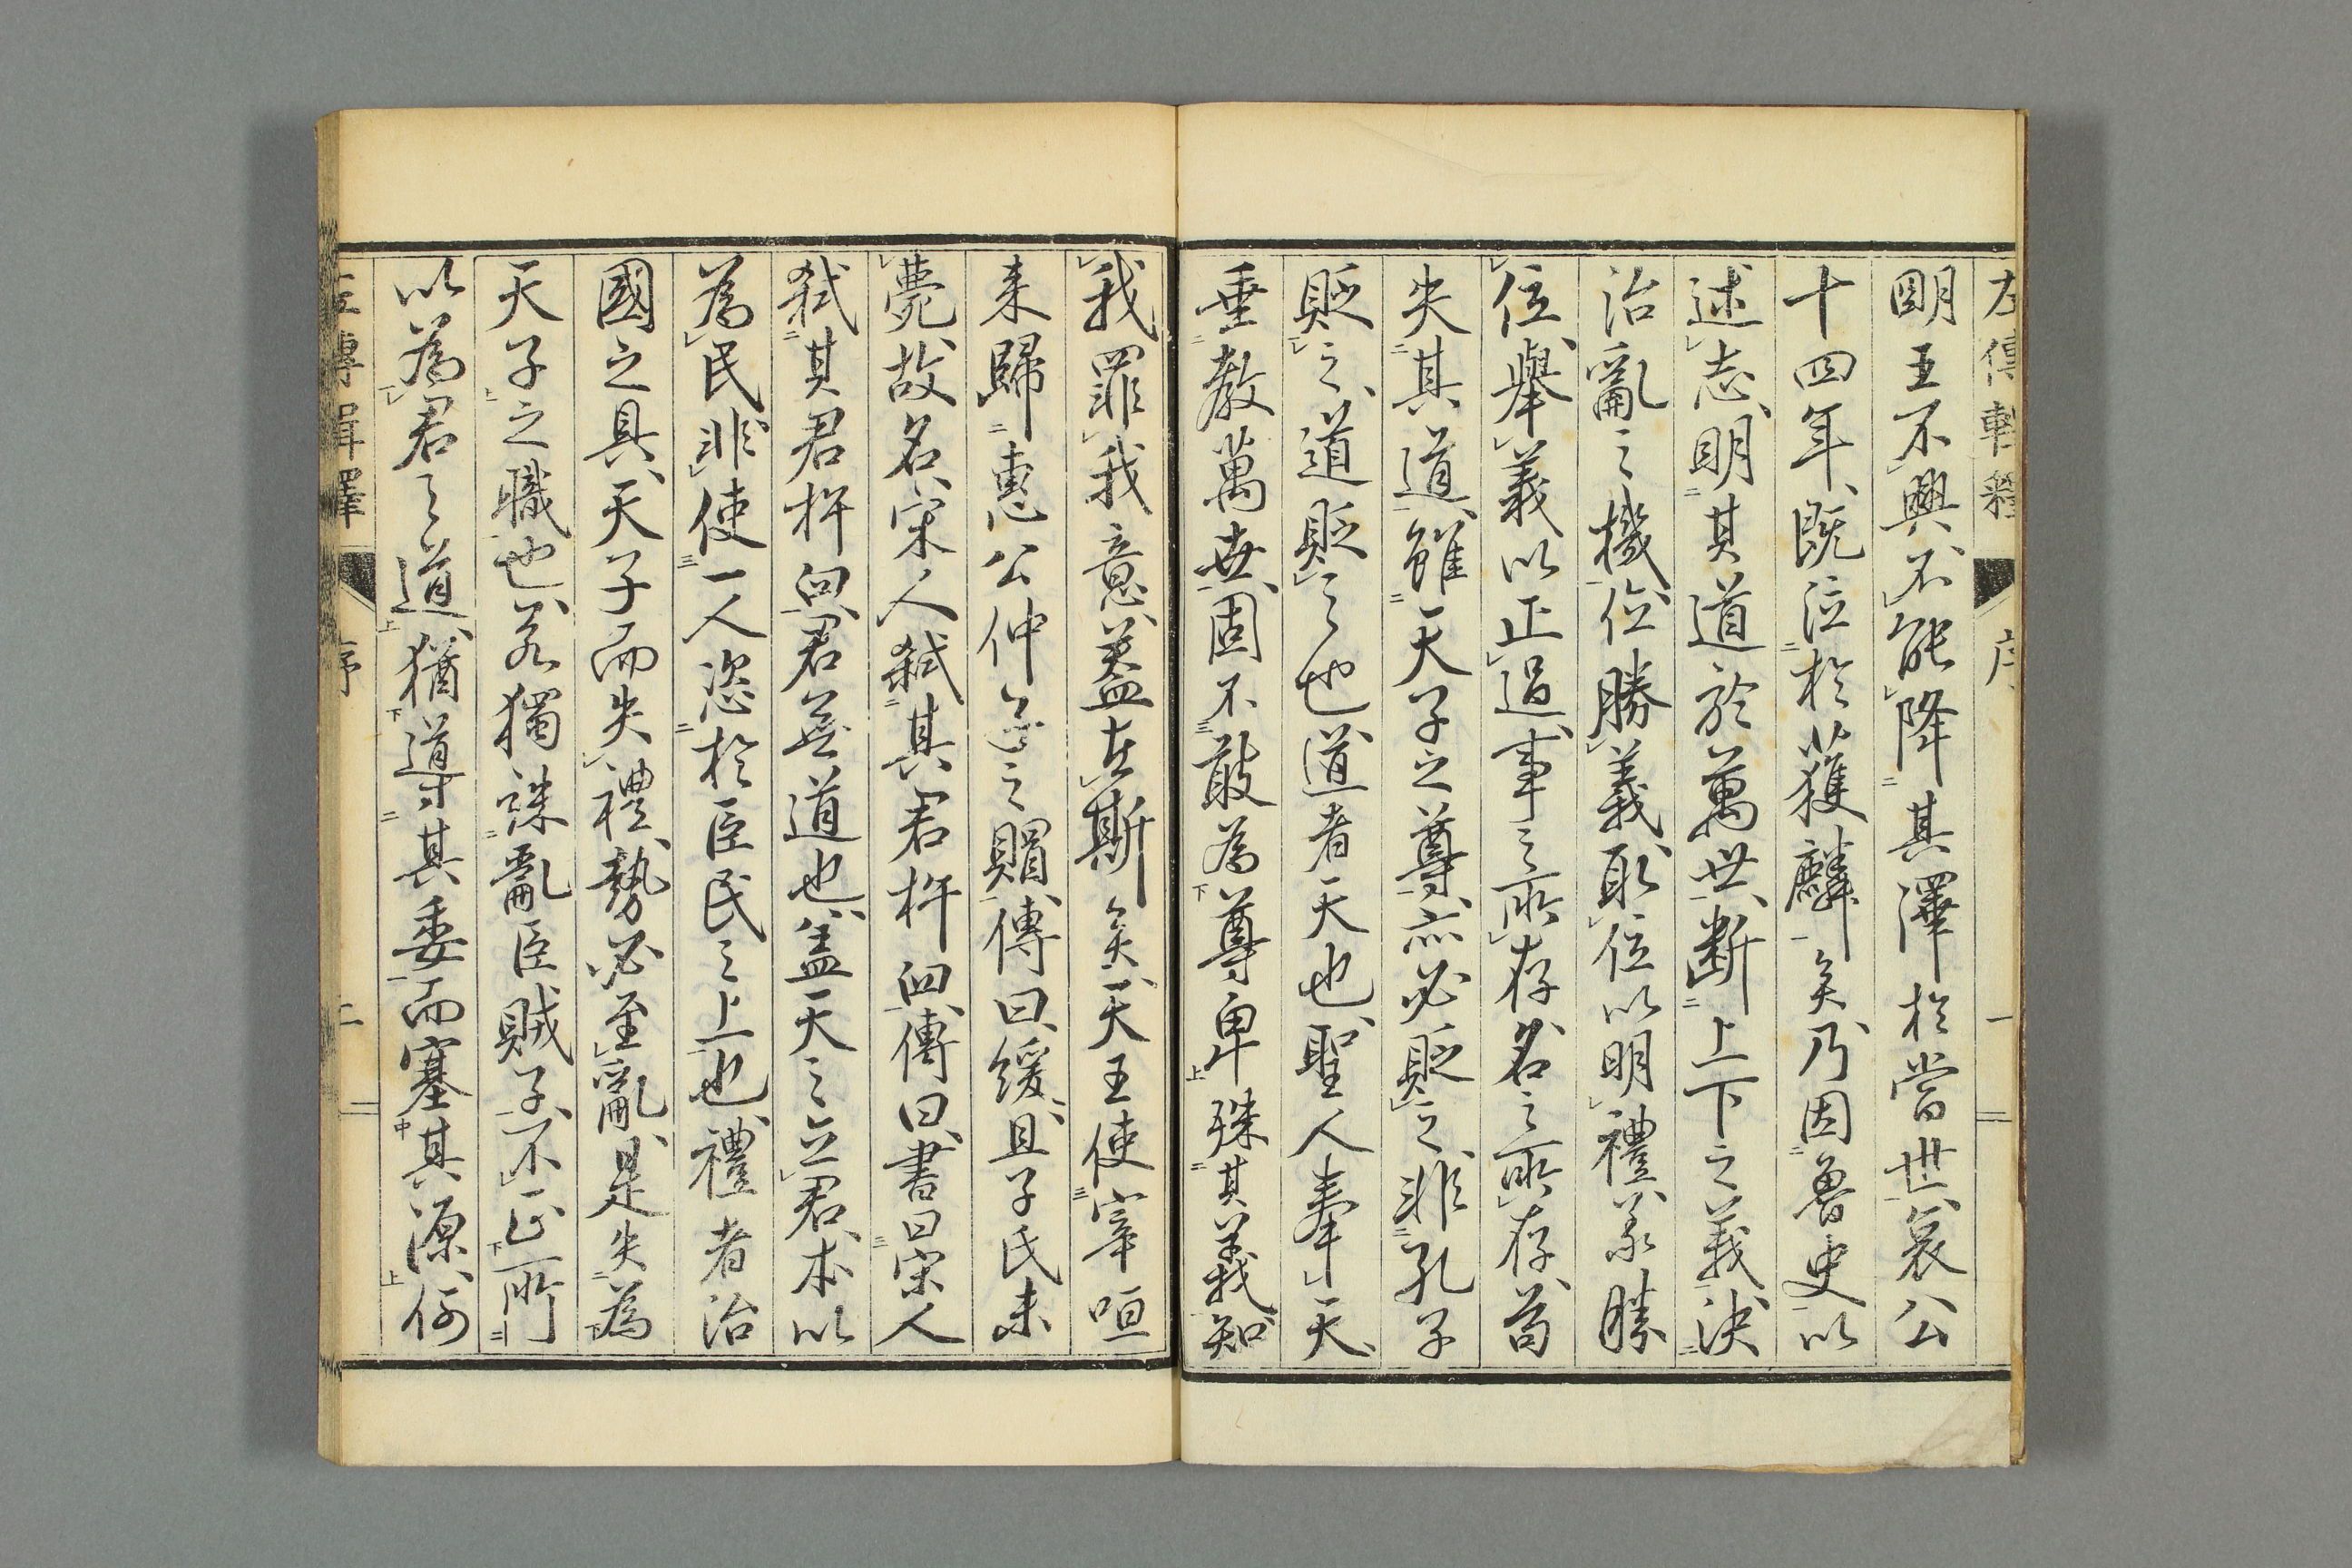 左傳輯釋 序 一
明王不興不能降其澤於當世哀公
十四年既泣於獲麟矣乃因魯史以
述志明其道於萬世斷上下之義決
治亂之機位勝義取位以明禮義勝
位舉義以正過事之所存名之所存苟
失其道雖天子之尊亦必貶之非孔子
貶之道貶之也道者天也聖人奉天
垂教萬世固不敢為尊卑殊其義知
我罪我意蓋在斯矣天王使宰咺
来歸惠公仲子之賵傳曰緩且子氏未
薨故名宋人弒其君杵臼傳曰書曰宋人
弒其君杵臼君無道也蓋天之立君本以
為民非使一人恣於臣民之上也禮者治
國之具天子而失禮勢必至亂是失為
天子之職也若獨誅亂臣賊子不正所
以為君之道猶導其委而塞其源何
左傳輯釋 序 二